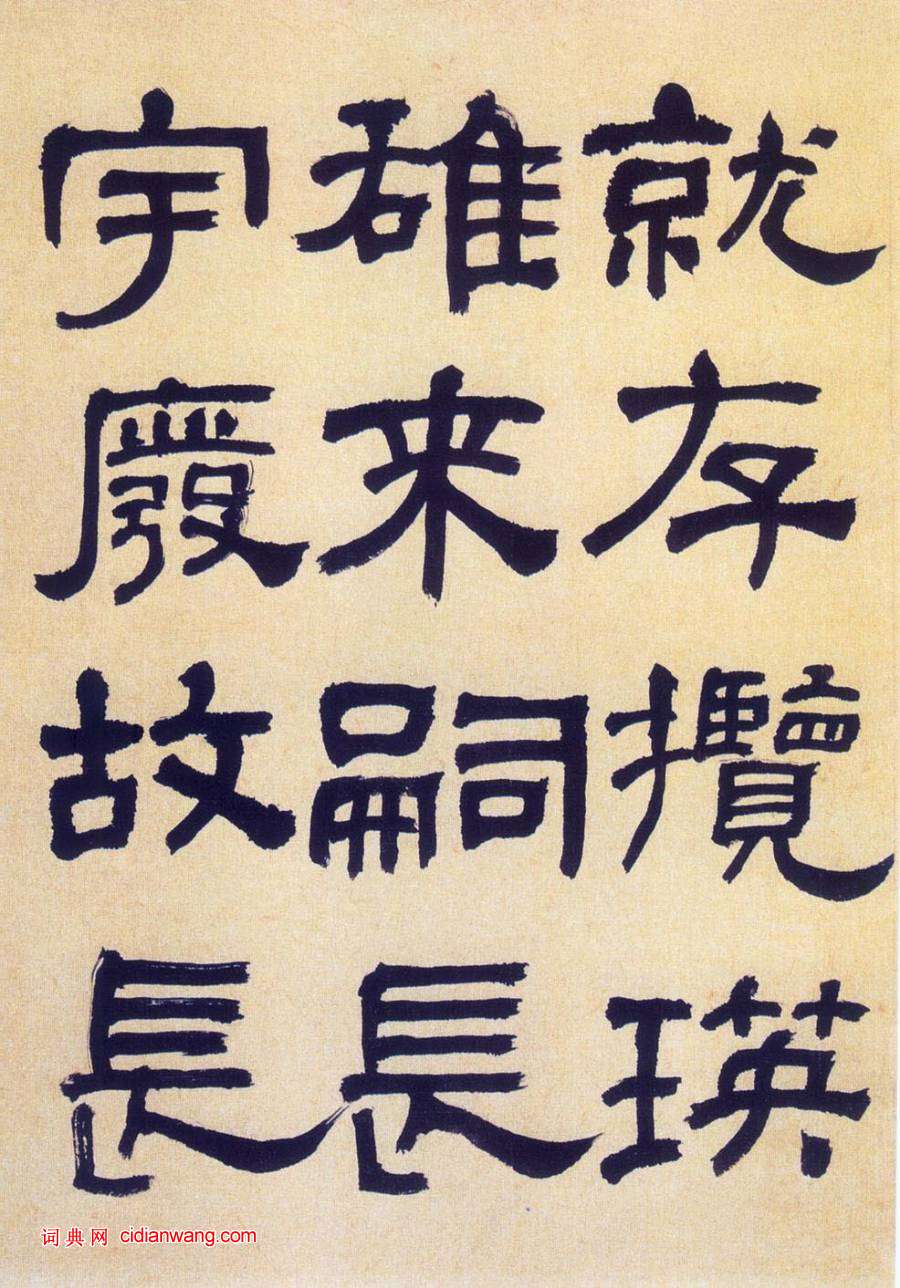 就存攬瑛
碓来嗣長
宇廢故長
词典网 cidianwang.com